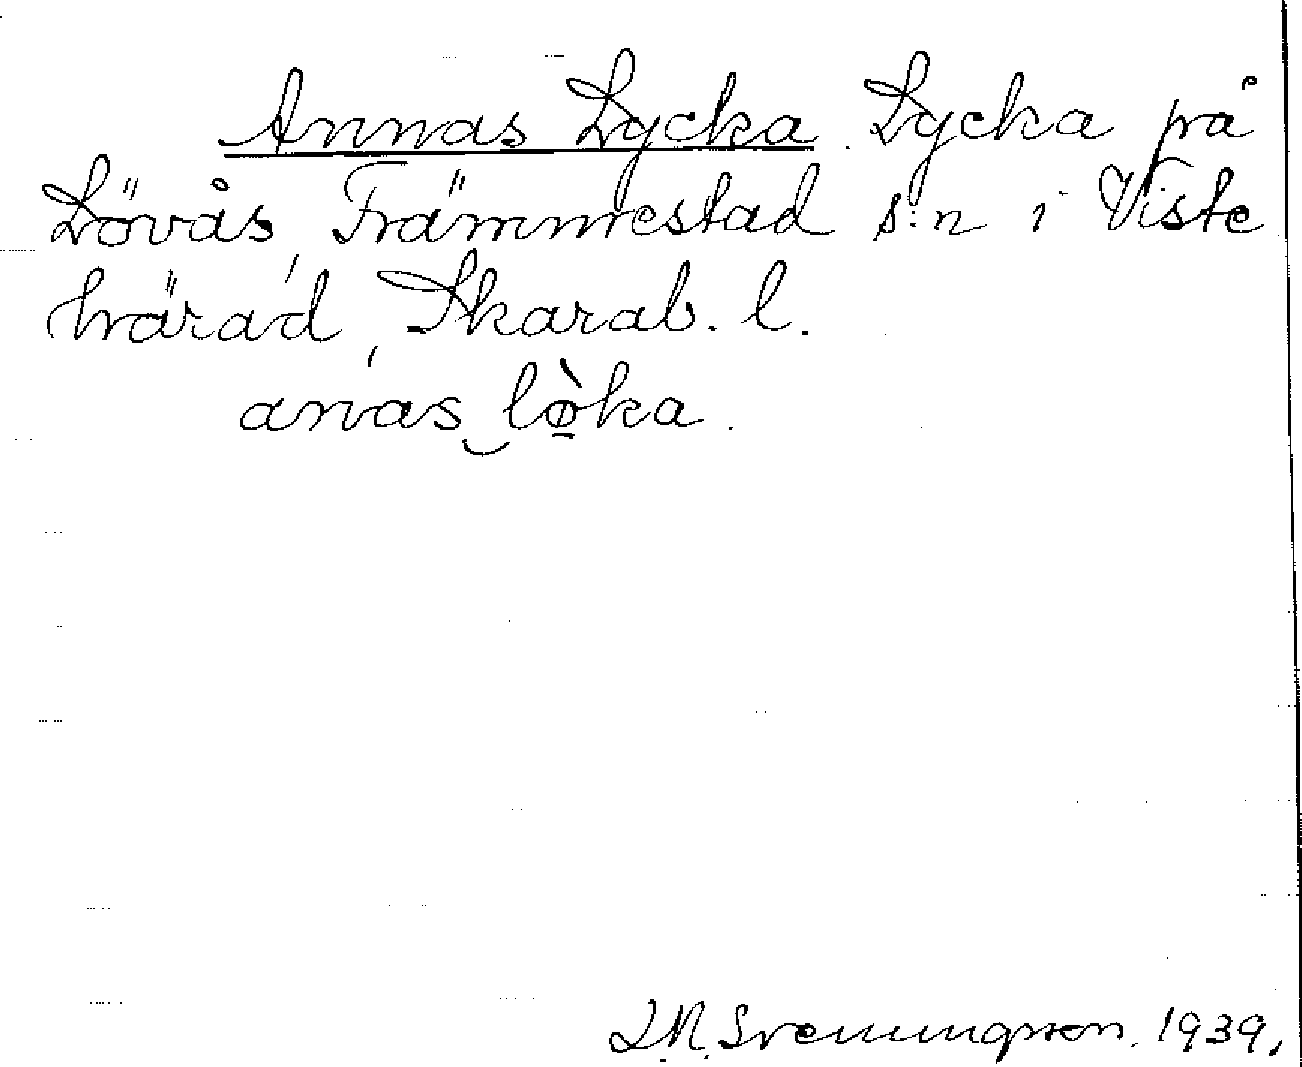 Annas Lycka. Lycka på
Lövås, Främmestad s:n i Viste
härad, Skarab. l.
anas‿lø̱̀ka.
L.N. Svenungsson. 1939.